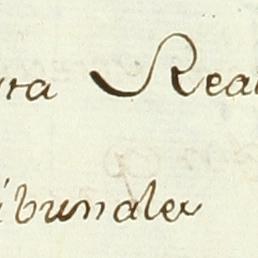 ra Rea
ibunales